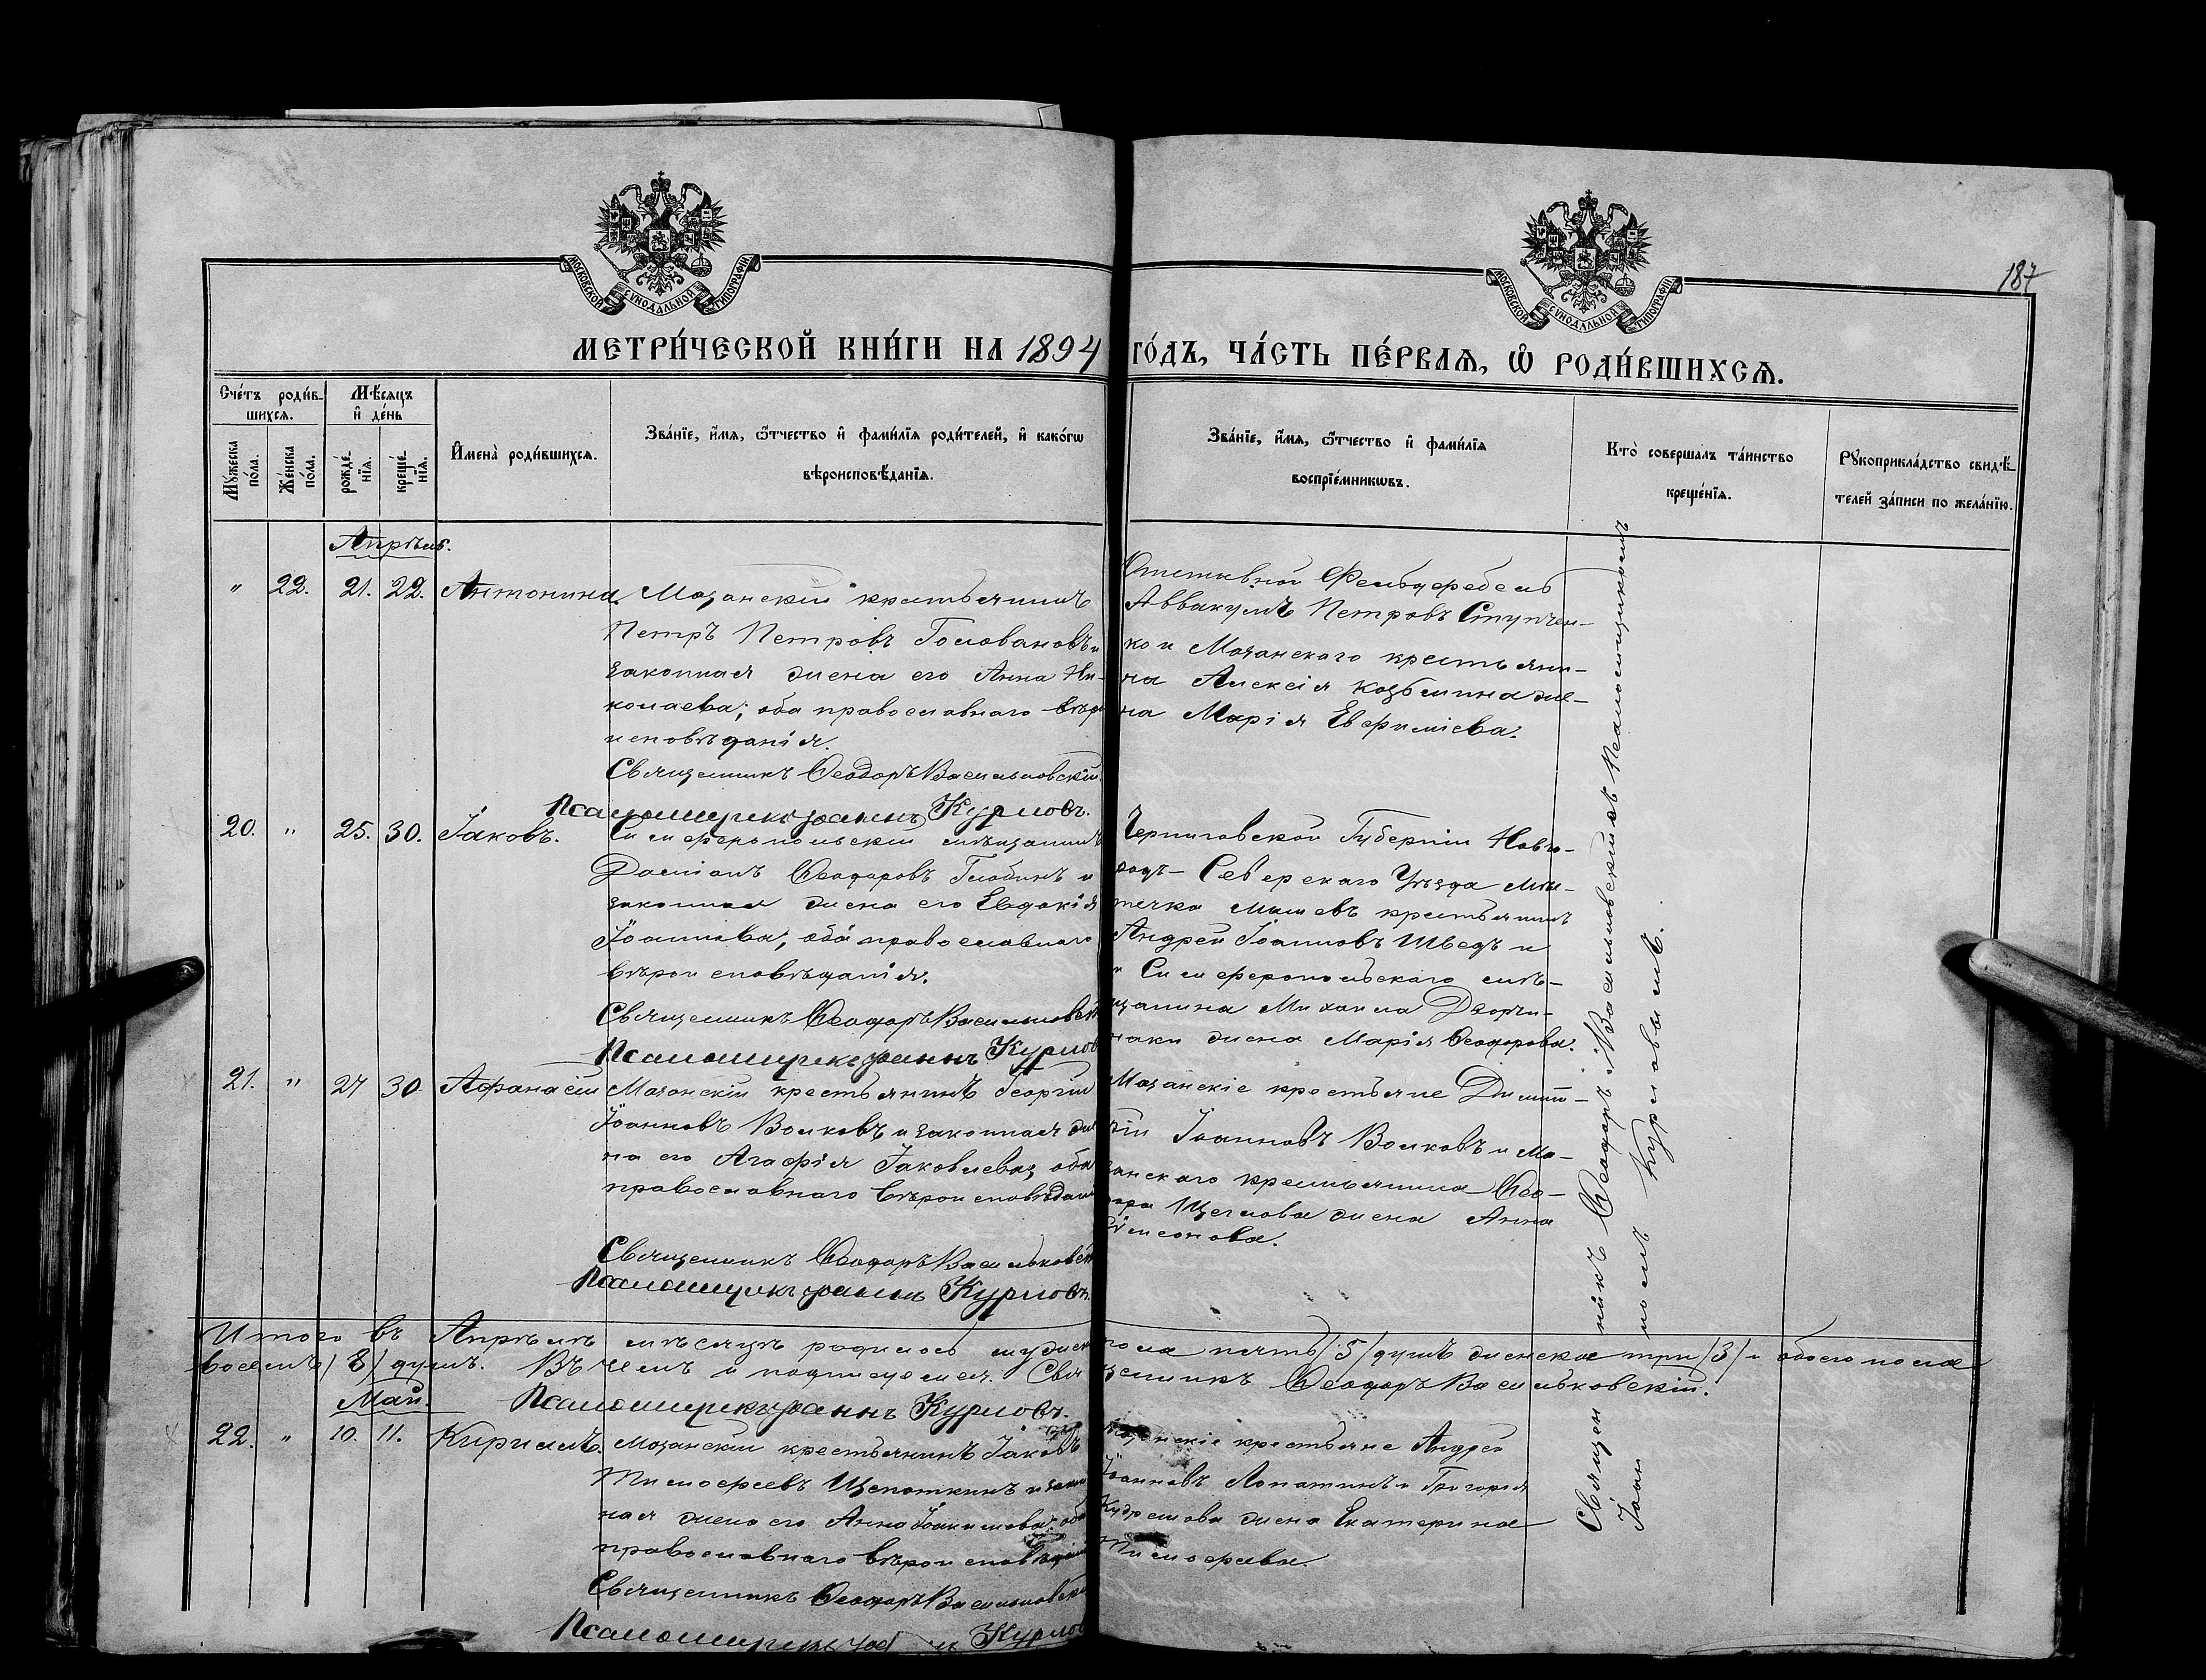 187
МОСКОВСКОЙ СѴНОДАЛЬНОЙ ТИПОГРАФІИ
МОСКОВСКОЙ СѴНОДАЛЬНОЙ ТИПОГРАФІИ
МЕТРИ́ЧЕСКОЙ КНИ́ГИ НА 1894 ГО́ДЪ, ЧА́СТЬ ПЕ́РВАѦ, Ѽ РОДИ́ВШИХСѦ.
Сче́тъ роди́в-
шихсѧ.
Мѣ́сѧцъ
и҆ де́нь
Мꙋ́жеска
по́ла.
Же́нска
по́ла.
рожде́-
нїѧ.
креще́-
нїѧ.
И҆мена̀ роди́вшихсѧ.
Зва́нїе, и҆́мѧ, ѻ҆́тчество и҆ фами́лїѧ роди́телей, и҆ како́гѡ
вѣроисповѣ́данїѧ.
Зва́нїе, и҆́мѧ, ѻ҆́тчество и҆ фами́лїѧ
воспрїе́мникѡвъ.
Кто̀ соверша́лъ та́инство
креще́нїѧ.
Рꙋкоприкла́дство свидѣ́-
телей за́писи по жела́нїю.
Апрѣль.
" 22. 21. 22. Антонина. Мазанскій крестьянинъ
Петръ Петровъ Головановъ и
законная жена его Анна Ни-
колаева; оба православнаго вѣро
исповѣданія.
Священникъ Ѳеодоръ Васильковскій.
Псаломщикъ Іоаннъ Курловъ.
Отставной Фельдфебель
Аввакумъ Петровъ Ступчен-
ко и Мазанскаго крестьяни-
на Алексія Козьмина же-
на Марія Евфиміева.
20. " 25. 30. Іаковъ. Симферопольскій мѣщанинъ
Даміанъ Ѳеодоровъ Глобинъ и
законная жена его Евдокія
Іоаннова; оба православнаго
вѣроисповѣданія.
Священникъ Ѳеодоръ Васильковскій
Псаломщикъ Іоаннъ Курловъ
Черниговской Губерніи Новго-
родъ-Северскаго Уѣзда мѣс-
течка крестьянинъ
Андрей Іоанновъ Шведъ и
и Симферопольскаго мѣ-
щанина Михаила
жена Марія Ѳеодорова.
21. " 27 30 Афанасій Мазанскій крестьянинъ Георгій
Іоанновъ Волковъ и законная же
на его Агафія Іаковлева; оба
православнаго вѣроисповѣданія
Священникъ Ѳеодоръ Васильковскій
Псаломщикъ Іоаннъ Курловъ.
Мазанскіе крестьяне Димит-
рій Іоанновъ Волковъ и Ма-
занскаго крестьянина Ѳео-
дора Щеглова жена Анна
Симеонова.
Итого въ Апрѣлѣ мѣсяцѣ родилось мужеск пола пять /5/ душъ женска три /3/ и обоего пола
восемь /8/ душъ. Въ чемъ и подписуемся. Священникъ Ѳеодоръ Васильковскій.
Псаломщикъ Іоаннъ Курловъ.
Май.
22. " 10. 11. Кириллъ. Мазанскій крестьянинъ Іаковъ
Тимофеевъ Щепоткинъ и закон
ная жена его Анна Іоакимова; оба
православнаго вѣроисповѣданія
Священникъ Ѳеодоръ Васильковскій
Псаломщикъ Курловъ
Мазанскіе крестьяне Андрей
Іоанновъ Лопатинъ и Григорія
жена Екатерина
Тимофеева.
Священникъ Ѳеодоръ Васильковскій съ Псаломщикомъ
Іоанномъ Курловымъ.